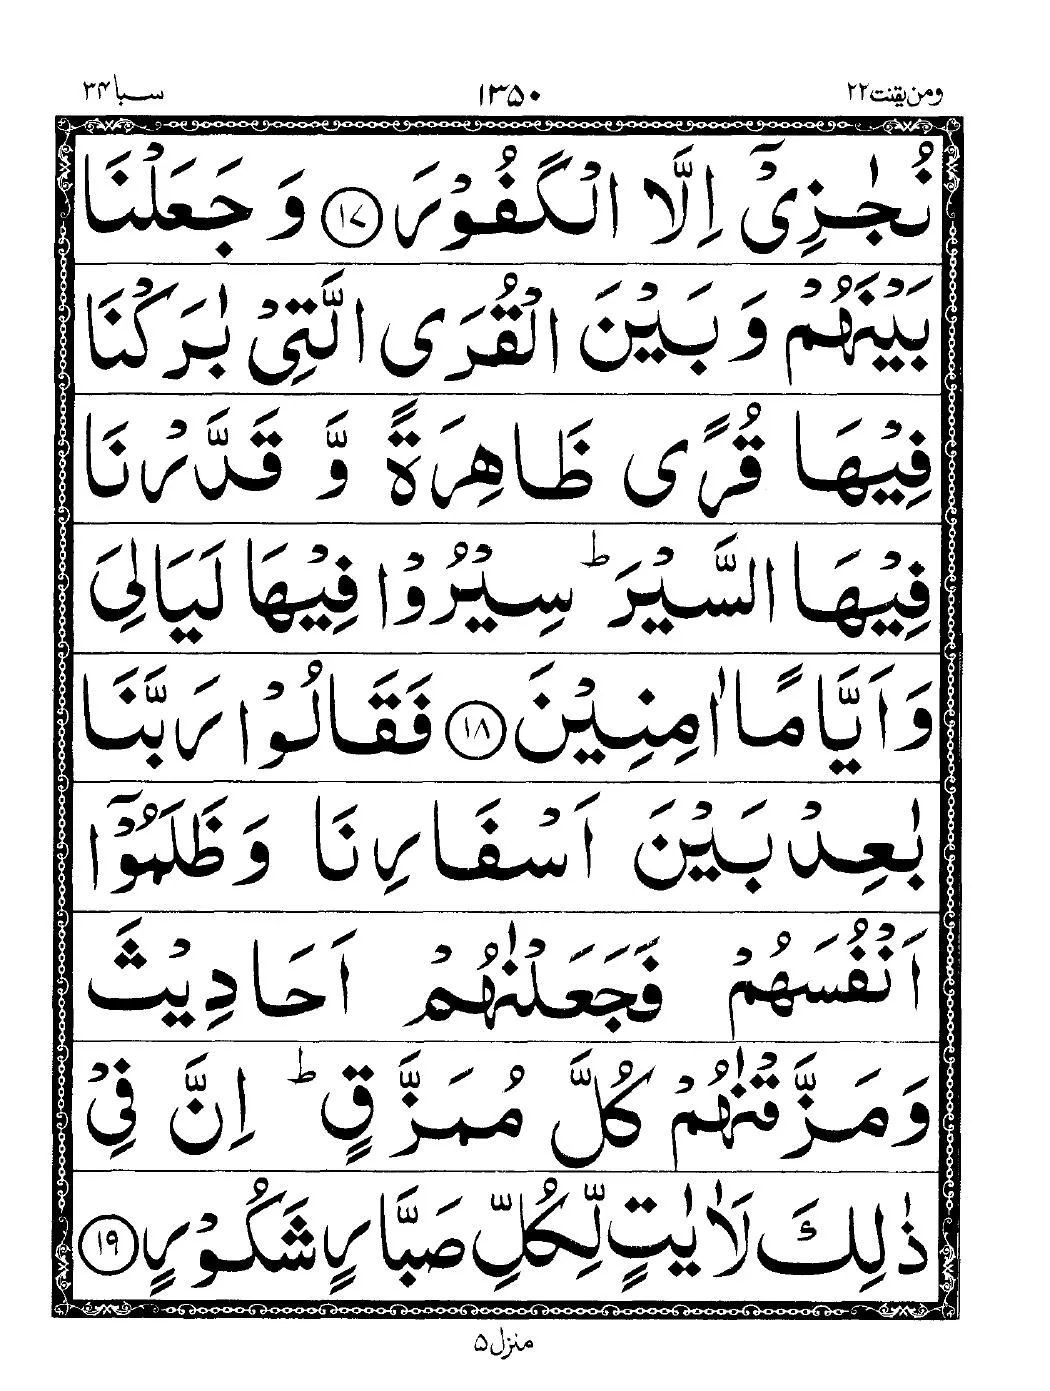 ومن یقنت ۲۲
۱۳۵۰
سبا ۳۴
نُجٰزِیْۤ اِلَّا الْكَفُوْرَ ۝۱۷ وَ جَعَلْنَا
بَیْنَهُمْ وَ بَیْنَ الْقُرَی الَّتِیْ بٰرَكْنَا
فِیْهَا قُرًی ظَاهِرَةً وَّ قَدَّرْنَا
فِیْهَا السَّیْرَ ؕ سِیْرُوْا فِیْهَا لَیَالِیَ
وَ اَیَّامًا اٰمِنِیْنَ ۝۱۸ فَقَالُوْا رَبَّنَا
بٰعِدْ بَیْنَ اَسْفَارِنَا وَ ظَلَمُوْۤا
اَنْفُسَهُمْ فَجَعَلْنٰهُمْ اَحَادِیْثَ
وَ مَزَّقْنٰهُمْ كُلَّ مُمَزَّقٍ ؕ اِنَّ فِیْ
ذٰلِكَ لَاٰیٰتٍ لِّكُلِّ صَبَّارٍ شَكُوْرٍ ۝۱۹
منزل ۵